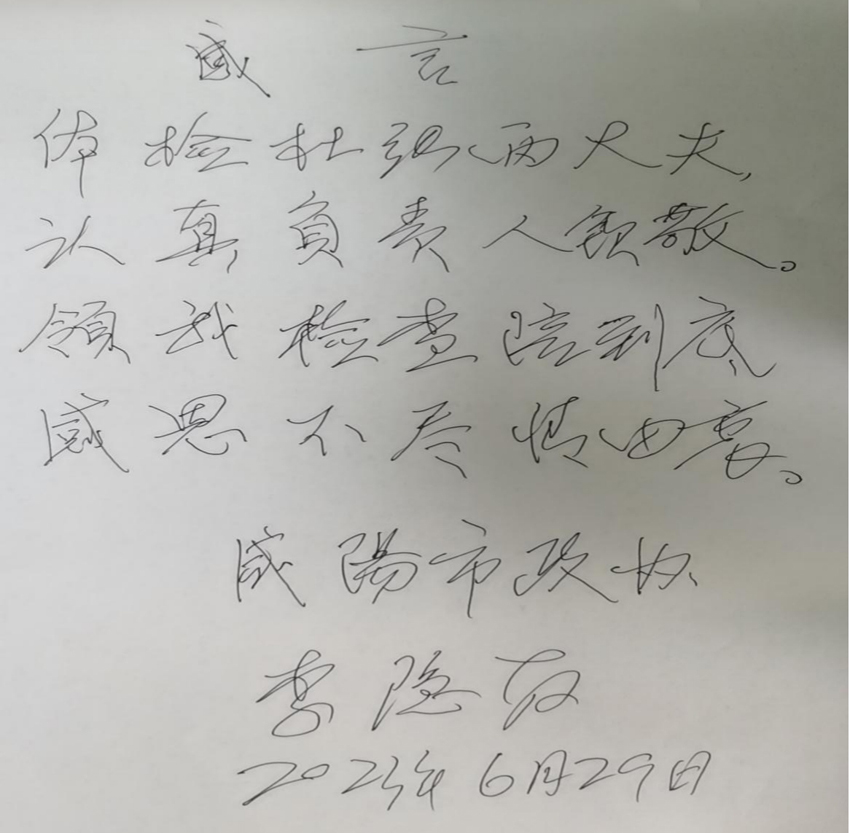 感言
体检杜张两大夫,
认真负责人钦敬。
领我检查陪到底
感恩不尽情由衷。
咸阳市政协
李隐友
2023年6月29日